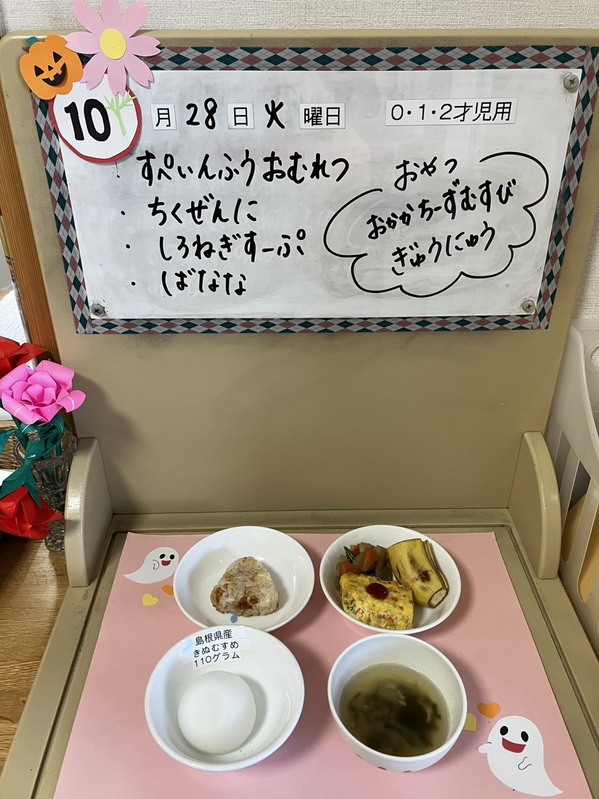 10月28日火曜日 0・1・2才児用
・すぺいんふうおむれつ
・ちくぜんに
・しろねぎすーぷ
・ばなな
おやつ
おかかちーずむすび
ぎゅうにゅう
島根県産
きぬむすめ
110グラム